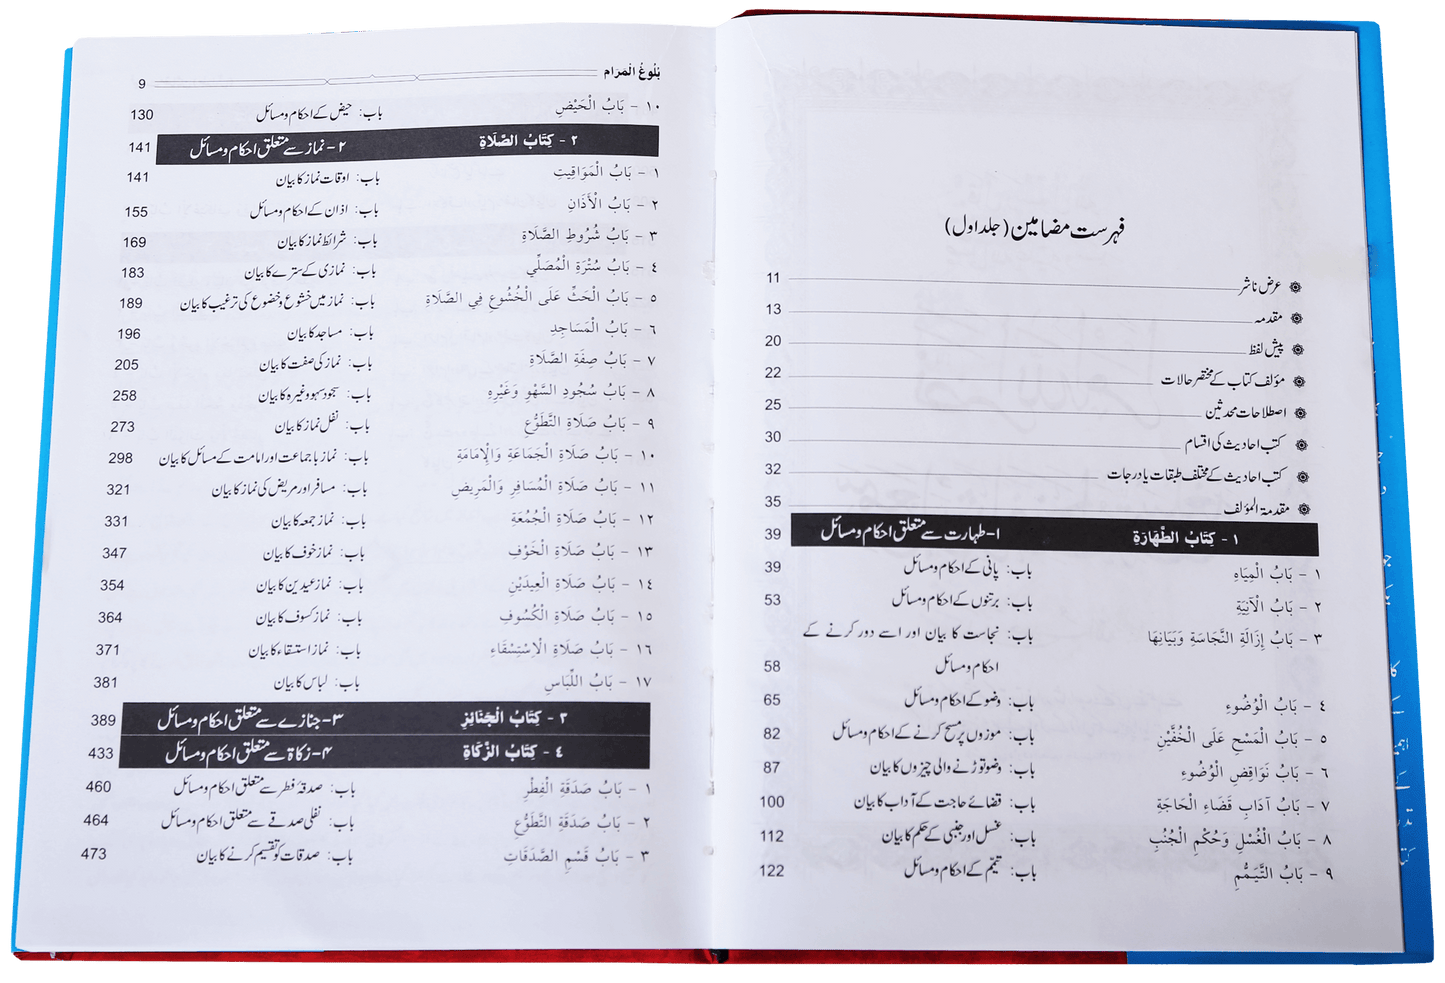 فہرست مضامین (جلد اول)
عرض ناشر 11
مقدمہ 13
پیش لفظ 20
مؤلف کتاب کے مختصر حالات 22
اصطلاحات محدثین 25
کتب احادیث کی اقسام 30
کتب احادیث کے مختلف طبقات یا درجات 32
مقدمۃ المؤلف 35
١ - كِتَابُ الطَّهَارَةِ ۱- طہارت سے متعلق احکام و مسائل 39
١ - بَابُ الْمِيَاهِ باب: پانی کے احکام و مسائل 39
٢ - بَابُ الْآنِيَةِ باب: برتنوں کے احکام و مسائل 53
٣ - بَابُ إِزَالَةِ النَّجَاسَةِ وَبَيَانِهَا باب: نجاست کا بیان اور اسے دور کرنے کے
احکام و مسائل 58
٤ - بَابُ الْوُضُوءِ باب: وضو کے احکام و مسائل 65
٥ - بَابُ الْمَسْحِ عَلَى الْخُفَّيْنِ باب: موزوں پر مسح کرنے کے احکام و مسائل 82
٦ - بَابُ نَوَاقِضِ الْوُضُوءِ باب: وضو توڑنے والی چیزوں کا بیان 87
٧ - بَابُ آدَابِ قَضَاءِ الْحَاجَةِ باب: قضائے حاجت کے آداب کا بیان 100
٨ - بَابُ الْغُسْلِ وَحُكْمِ الْجُنُبِ باب: غسل اور جنبی کے حکم کا بیان 112
٩ - بَابُ التَّيَمُّمِ باب: تیمّم کے احکام و مسائل 122
بُلُوغُ الْمَرَام 9
١٠ - بَابُ الْحَيْضِ باب: حیض کے احکام و مسائل 130
٢ - كِتَابُ الصَّلَاةِ ۲- نماز سے متعلق احکام و مسائل 141
١ - بَابُ الْمَوَاقِيتِ باب: اوقات نماز کا بیان 141
٢ - بَابُ الْأَذَانِ باب: اذان کے احکام و مسائل 155
٣ - بَابُ شُرُوطِ الصَّلَاةِ باب: شرائط نماز کا بیان 169
٤ - بَابُ سُتْرَةِ الْمُصَلِّي باب: نمازی کے سترے کا بیان 183
٥ - بَابُ الْحَثِّ عَلَى الْخُشُوعِ فِي الصَّلَاةِ باب: نماز میں خشوع و خضوع کی ترغیب کا بیان 189
٦ - بَابُ الْمَسَاجِدِ باب: مساجد کا بیان 196
٧ - بَابُ صِفَةِ الصَّلَاةِ باب: نماز کی صفت کا بیان 205
٨ - بَابُ سُجُودِ السَّهْوِ وَغَيْرِهِ باب: سجود سہو وغیرہ کا بیان 258
٩ - بَابُ صَلَاةِ التَّطَوُّعِ باب: نفل نماز کا بیان 273
١٠ - بَابُ صَلَاةِ الْجَمَاعَةِ وَالْإِمَامَةِ باب: نماز با جماعت اور امامت کے مسائل کا بیان 298
١١ - بَابُ صَلَاةِ الْمُسَافِرِ وَالْمَرِيضِ باب: مسافر اور مریض کی نماز کا بیان 321
١٢ - بَابُ صَلَاةِ الْجُمُعَةِ باب: نماز جمعہ کا بیان 331
١٣ - بَابُ صَلَاةِ الْخَوْفِ باب: نماز خوف کا بیان 347
١٤ - بَابُ صَلَاةِ الْعِيدَيْنِ باب: نماز عیدین کا بیان 354
١٥ - بَابُ صَلَاةِ الْكُسُوفِ باب: نماز کسوف کا بیان 364
١٦ - بَابُ صَلَاةِ الْاِسْتِسْقَاءِ باب: نماز استسقاء کا بیان 371
١٧ - بَابُ اللِّبَاسِ باب: لباس کا بیان 381
٣ - كِتَابُ الْجَنَائِزِ ۳- جنازے سے متعلق احکام و مسائل 389
٤ - كِتَابُ الزَّكَاةِ ۴- زکاۃ سے متعلق احکام و مسائل 433
١ - بَابُ صَدَقَةِ الْفِطْرِ باب: صدقۂ فطر سے متعلق احکام و مسائل 460
٢ - بَابُ صَدَقَةِ التَّطَوُّعِ باب: نفلی صدقے سے متعلق احکام و مسائل 464
٣ - بَابُ قَسْمِ الصَّدَقَاتِ باب: صدقات کو تقسیم کرنے کا بیان 473